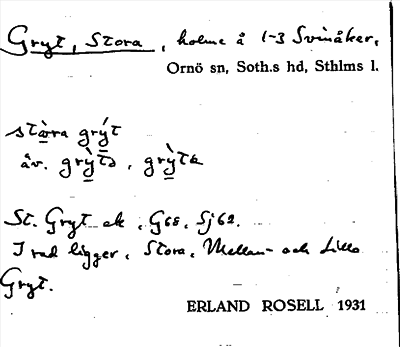 Gryt, Stora, holme å 1-3 Svinåker,
Ornö sn, Soth.s hd, Sthlms l.
stòra grýt
äv. grỳtə, grỳtɐ
St. Gryt ek, G68, Sj62.
I rad ligger, Stora, Mellan- och Lilla
Gryt.
ERLAND ROSELL 1931